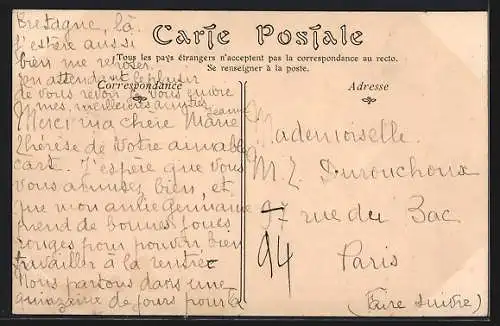 Bretagne, là
j'espère aussi
bien me reposer.
En attendant le plaisir
de vous revoir je vous envoie
mes meilleures amitiés
Jeanne
Carte Postale
Tous les pays étrangers n'acceptent pas la correspondance au recto.
Se renseigner à la poste.
Correspondance
Adresse
Merci ma chère Marie
Thérèse de votre aimable
carte. J'espère que vous
vous amusez bien, et
que mon amie Germaine
prend de bonnes joues
rouges pour pouvoir bien
travailler à la rentrée
Nous partons dans une
quinzaine de jours pour la
Mademoiselle
M. T. Durouchoux
97 rue du Bac
94
Paris
(Faire suivre)